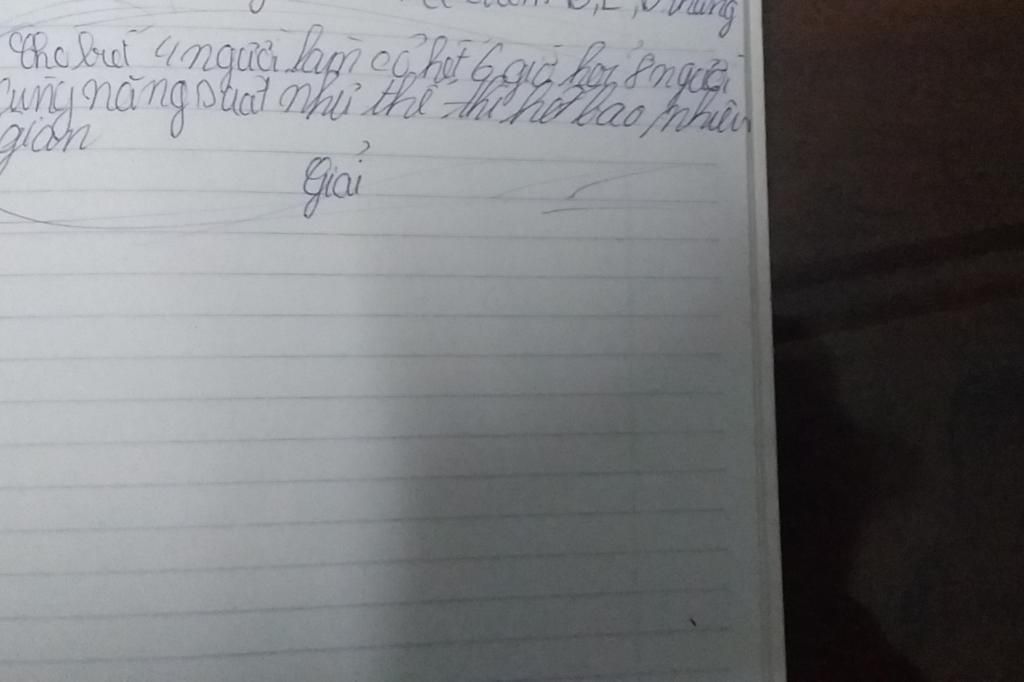 thẳng
Cho biết 4 người làm cỏ hết 6 giờ hỏi 8 người
cùng năng suất như thế thì hết bao nhiêu
gian
Giải